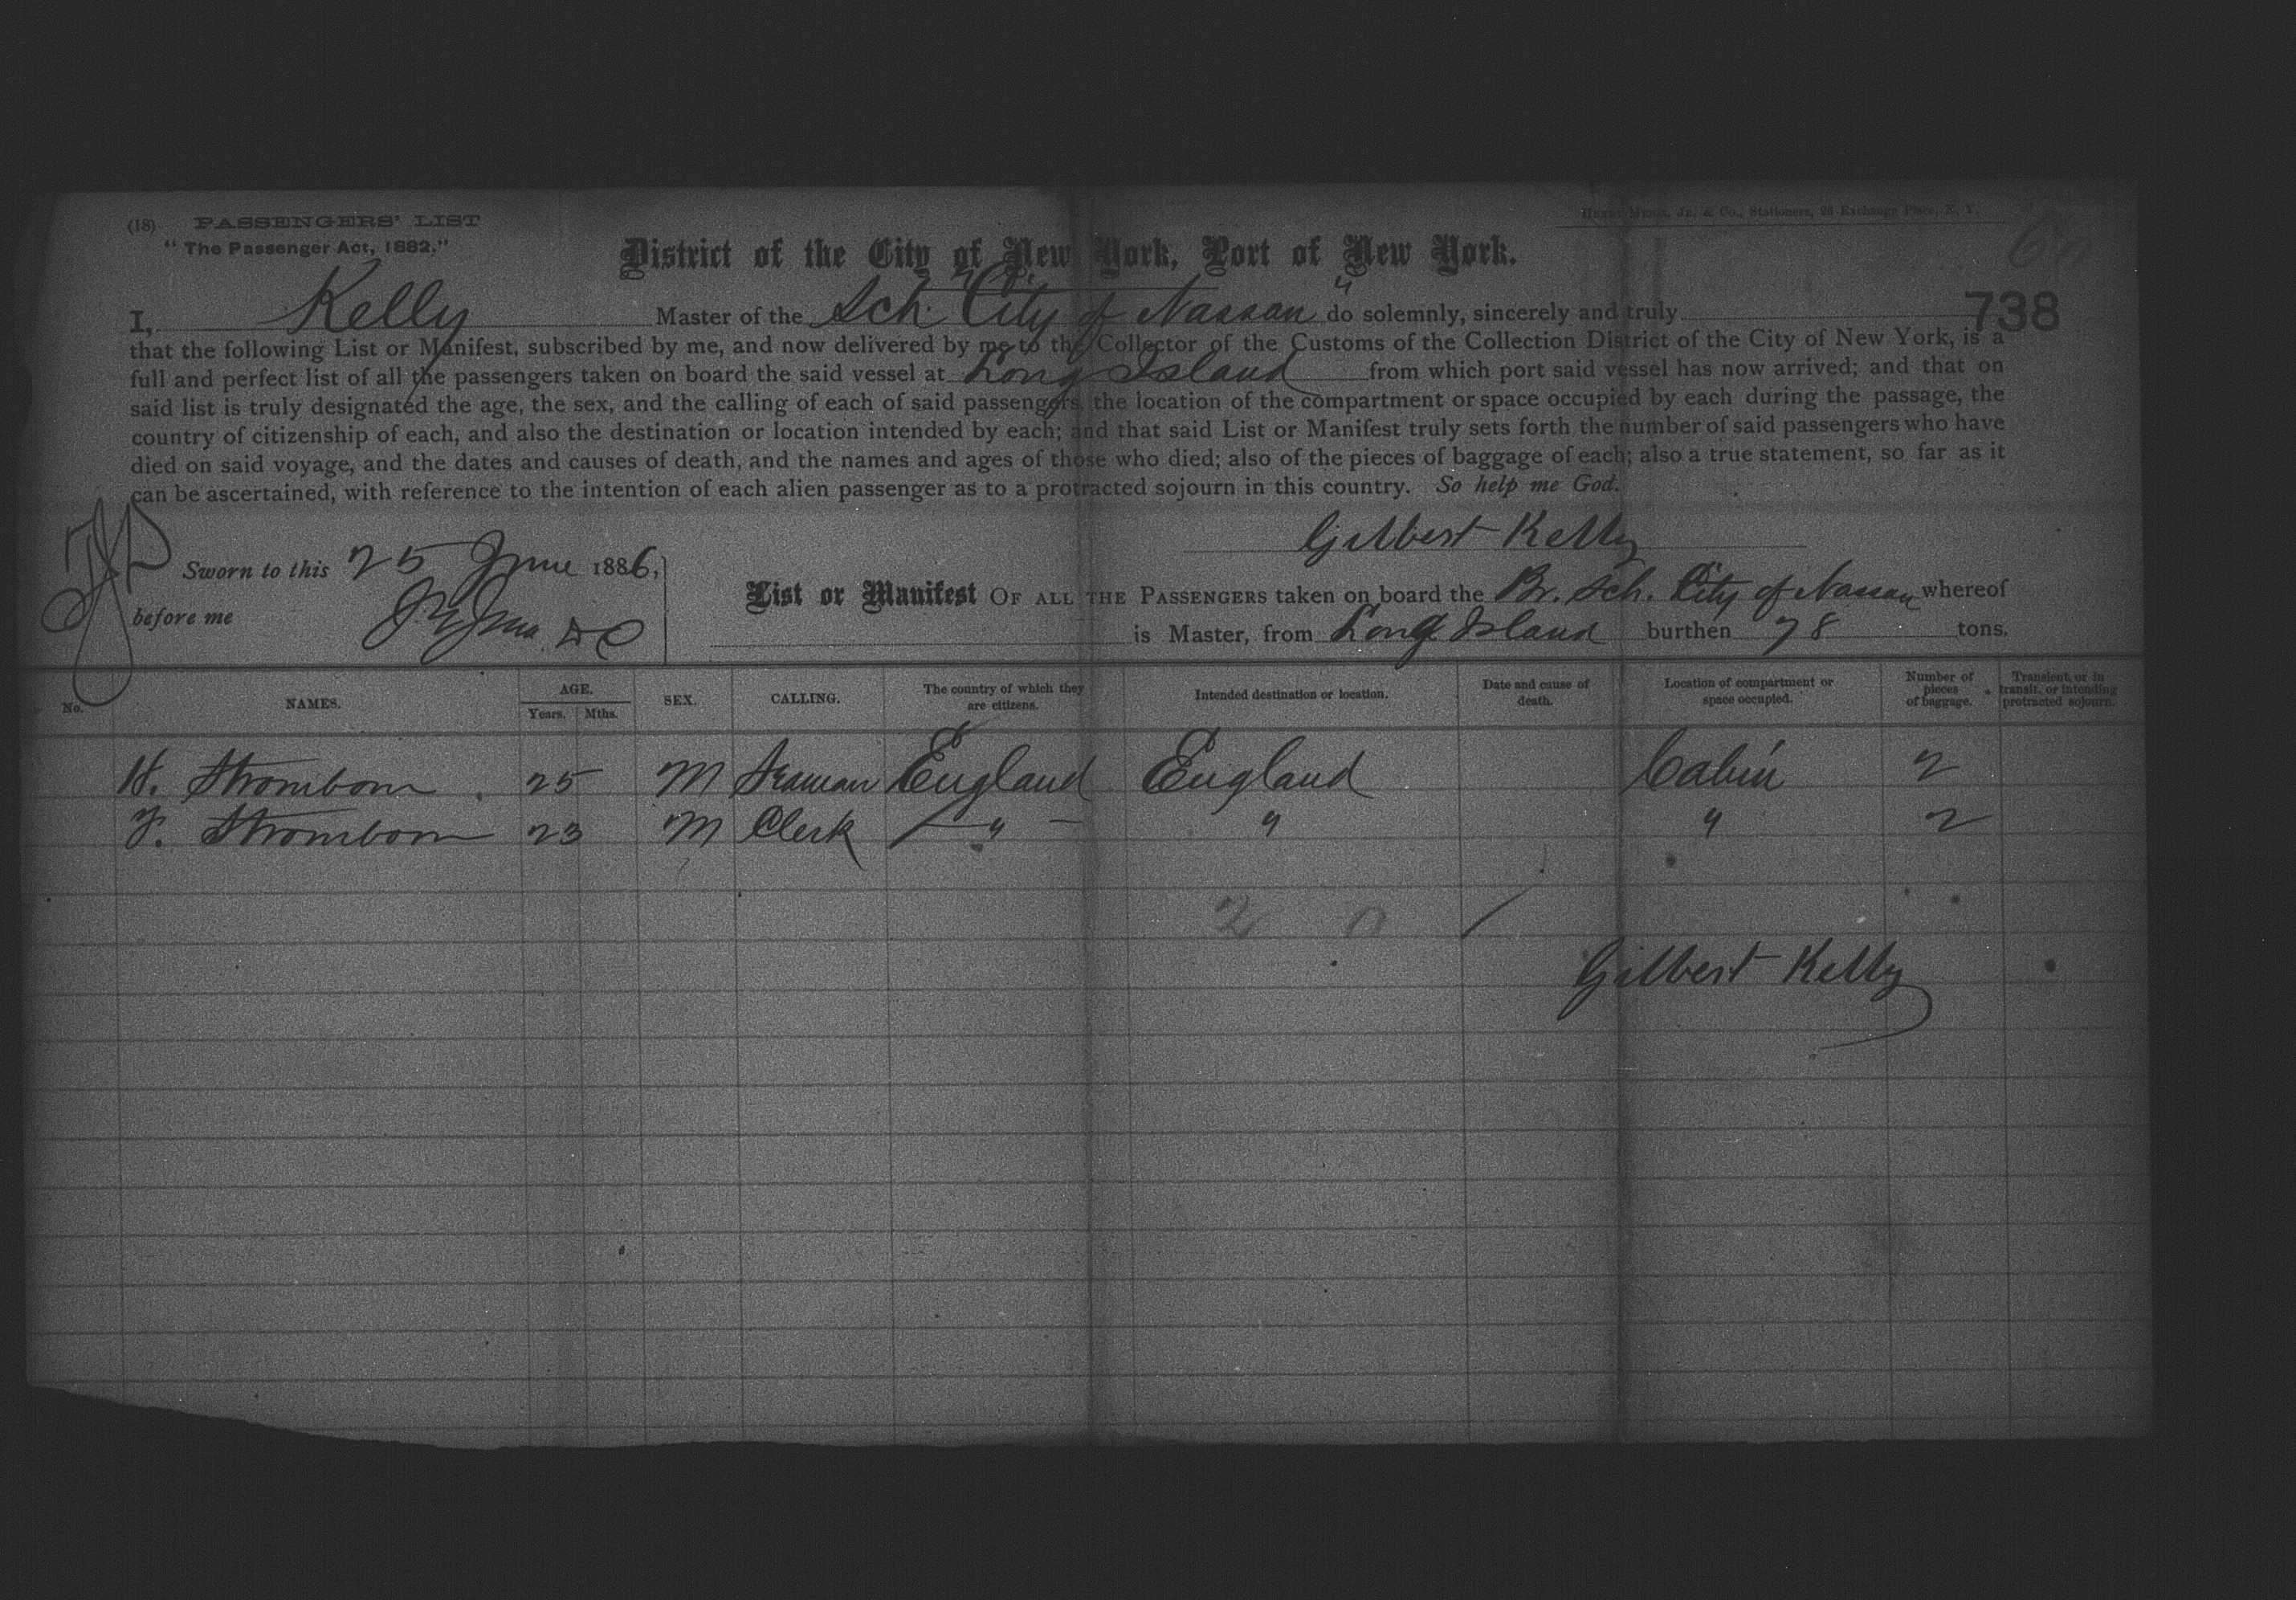 (18) PASSENGERS' LIST
"The Passenger Act, 1882."
HENRY MEYER, JR. & CO., Stationers, 26 Exchange Place, N. Y.
60
District of the City of New York, Port of New York.
738
I, Kelly Master of the Sch. "City of Nassau" do solemnly, sincerely and truly
that the following List or Manifest, subscribed by me, and now delivered by me to the Collector of the Customs of the Collection District of the City of New York, is a
full and perfect list of all the passengers taken on board the said vessel at Long Island from which port said vessel has now arrived; and that on
said list is truly designated the age, the sex, and the calling of each of said passengers, the location of the compartment or space occupied by each during the passage, the
country of citizenship of each, and also the destination or location intended by each; and that said List or Manifest truly sets forth the number of said passengers who have
died on said voyage, and the dates and causes of death, and the names and ages of those who died; also of the pieces of baggage of each; also a true statement, so far as it
can be ascertained, with reference to the intention of each alien passenger as to a protracted sojourn in this country. So help me God.
Gilbert Kelly
Sworn to this 25 June 1886,
before me
List or Manifest OF ALL THE PASSENGERS taken on board the Br. Sch. City of Nassau whereof
is Master, from Long Island burthen 78 tons.
No. NAMES. AGE. Years. Mths. SEX. CALLING. The country of which they are citizens. Intended destination or location. Date and cause of death. Location of compartment or space occupied. Number of pieces of baggage. Transient, or in transit, or intending protracted sojourn.
H. Strombom 25 M Seaman England England Cabin 2
F. Strombom 23 M Clerk " " " 2
2 0
Gilbert Kelly